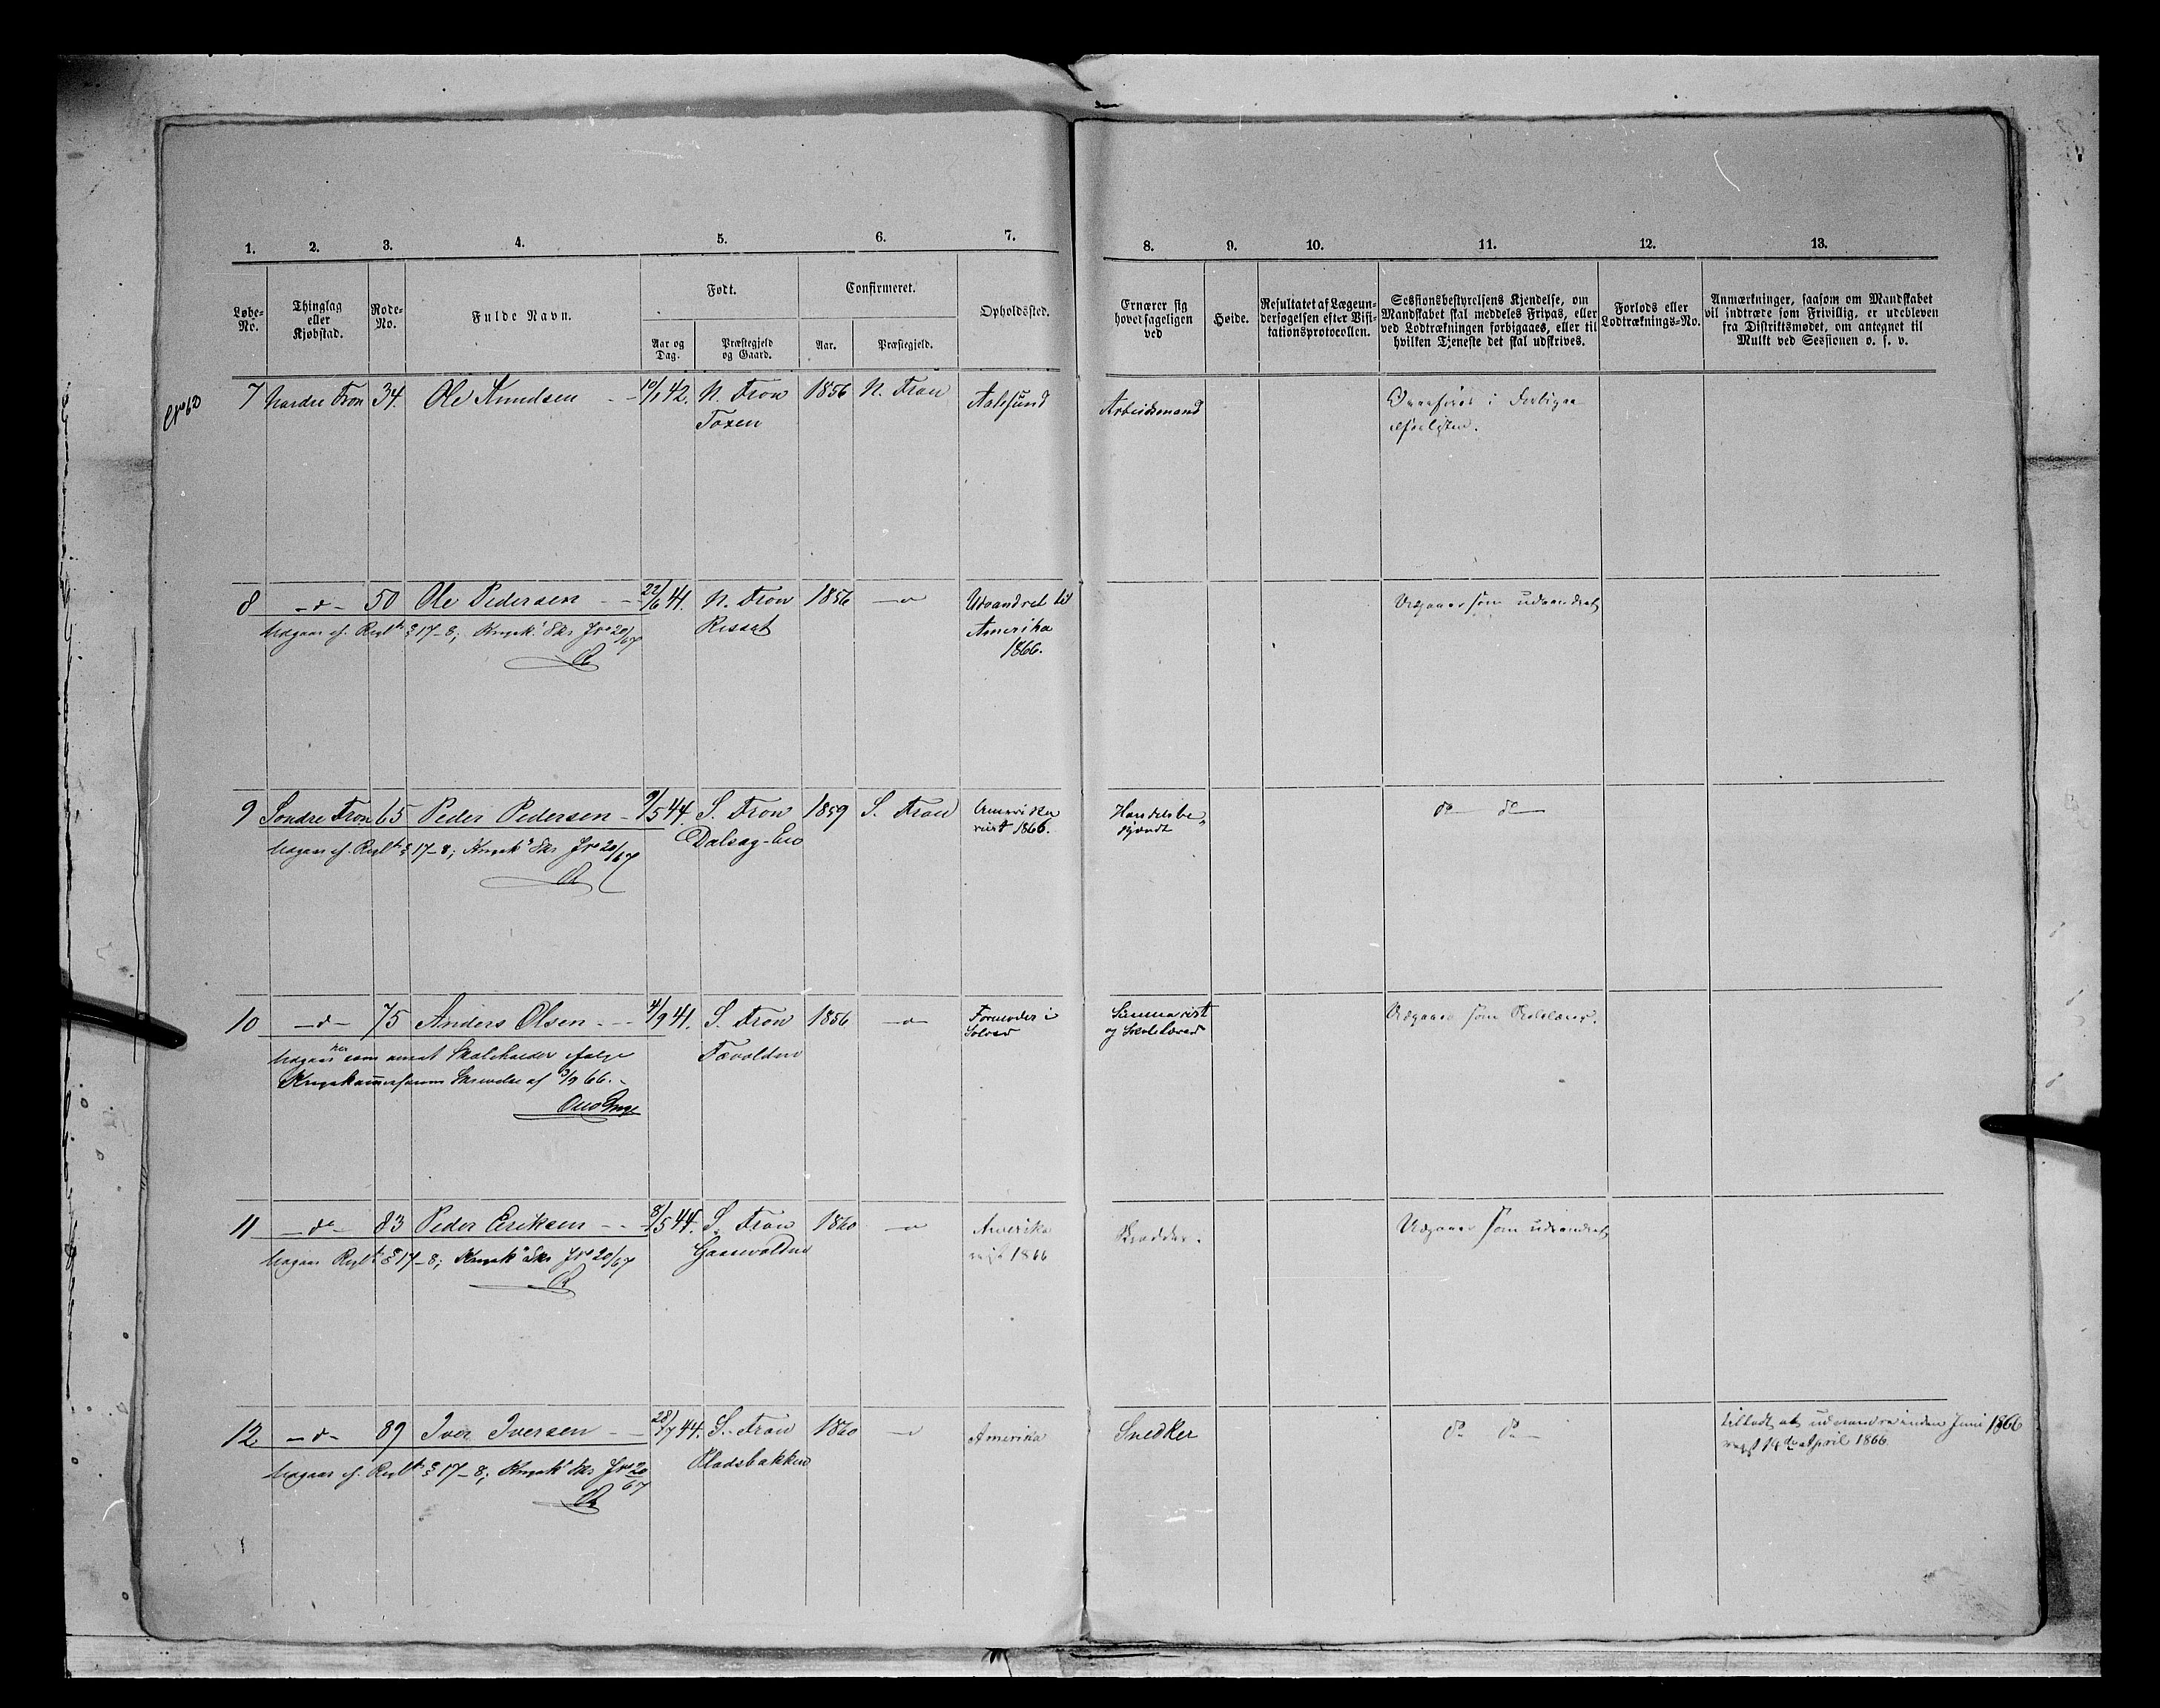 1. 2. 3. 4. 5. 6. 7. 8. 9. 10. 11. 12. 13.
Løbe-No.
Thinglag eller Kjøbstad.
Rode-No.
Fulde Navn.
Født.
Aar og Dag.
Præstegjeld og Gaard.
Confirmeret.
Aar.
Præstegjeld.
Opholdssted.
Ernærer sig hovedsageligen ved
Høide.
Resultatet af Lægeundersøgelsen efter Visitationsprotocollen.
Sessionsbestyrelsens Kjendelse, om Mandskabet skal meddeles Fripas, eller ved Lodtrækningen forbigaaes, eller til hvilken Tjeneste det skal udskrives.
Forlods eller Lodtræknings-No.
Anmærkninger, saasom om Mandskabet vil indtræde som Frivillig, er udebleven fra Distriktsmødet, om antegnet til Mulkt ved Sessionen o. s. v.
7 Nordre Fron 34. Ole Knudsen 10/1 42. N. Fron 1856 N. Fron Aalesund Arbeidsmand Overføres i Forbigaa
Toxen
8 -d- 50 Ole Pedersen 22/6 41. N. Fron 1856 -"- Udvandret til Udgaaer som udvandret
Udgaar cf. Reglt § 17-8; Krigsk. Skr. Jno 20/67 Risset Amerika
1866.
9 Søndre Fron 65 Peder Pedersen 9/5 44. S. Fron 1859 S. Fron Amerika Handelsbe- do do
Udgaar cf. Reglt § 17-8; Krigsk. Skr. Jno 20/67 reist 1866. tjendt
10 -d- 75 Anders Olsen 4/9 41. S. Fron 1856 -"- Formoder i Seminarist Udgaaer som Skolelærer.
Udgaar her som ansat Skoleholder ifølge og Skolelærer
Krigskommissærens Skrivelse af 3/9 66.
11 -do- 83 Peder Eriksen 8/5 44. S. Fron 1860 -"- Amerika Skrædder. Udgaaer som udvandret
Udgaar Reglt § 17-8; Krigsk. Skr. Jno 20/67 reist 1866
12 -d- 89 Iver Iversen 28/7 44. S. Fron 1860 -"- Amerika Snedker do do Tilladt at udvandre inden Juni 1866
Udgaar cf. Reglt § 17-8; Krigsk. Skr. Jno 20/67 Pladsbakken reist 14de April 1866